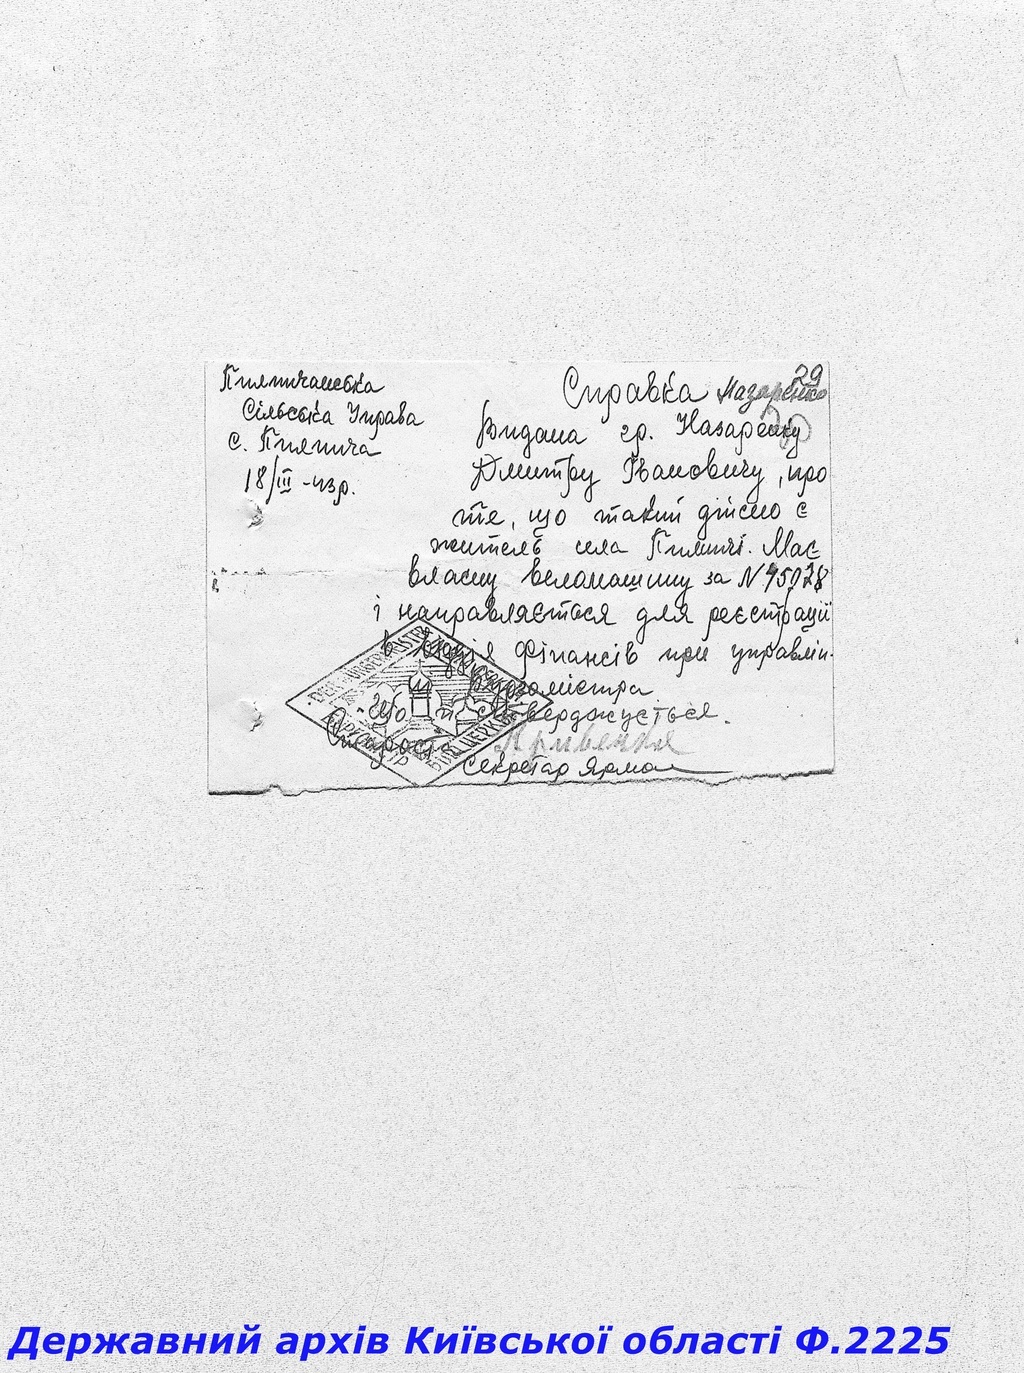 Пилипчанська
Сільська Управа
с. Пилипча
18/III
29
Справка Назаренко
Видана гр. Назаренку
Дмитру Івановичу, про
те, що такий дійсно є
житель села Пилипчі. Має
власну веломашину за №
і направляється для реєстрації
в фінансів при управлін.
Бургомістра
що й стверджується.
Староста
Секретар
DER BÜRGERMEISTER
Державний архів Київської області Ф.2225